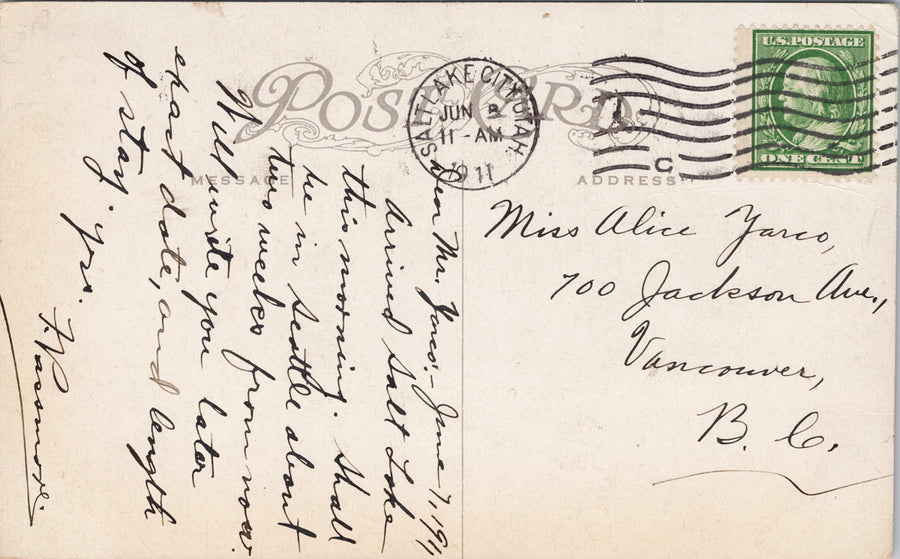 POST CARD
SALT LAKE CITY, UTAH.
JUN 8
11 - AM
1911
1
C
U.S. POSTAGE
ONE CENT
MESSAGE
ADDRESS
Dear Mr. Yarco:- June 7, 1911
Arrived Salt Lake
this morning. Shall
be in Seattle about
two weeks from now.
Will write you later
exact date, and length
of stay. Yrs.
Miss Alice Yarco,
700 Jackson Ave.,
Vancouver,
B. C.